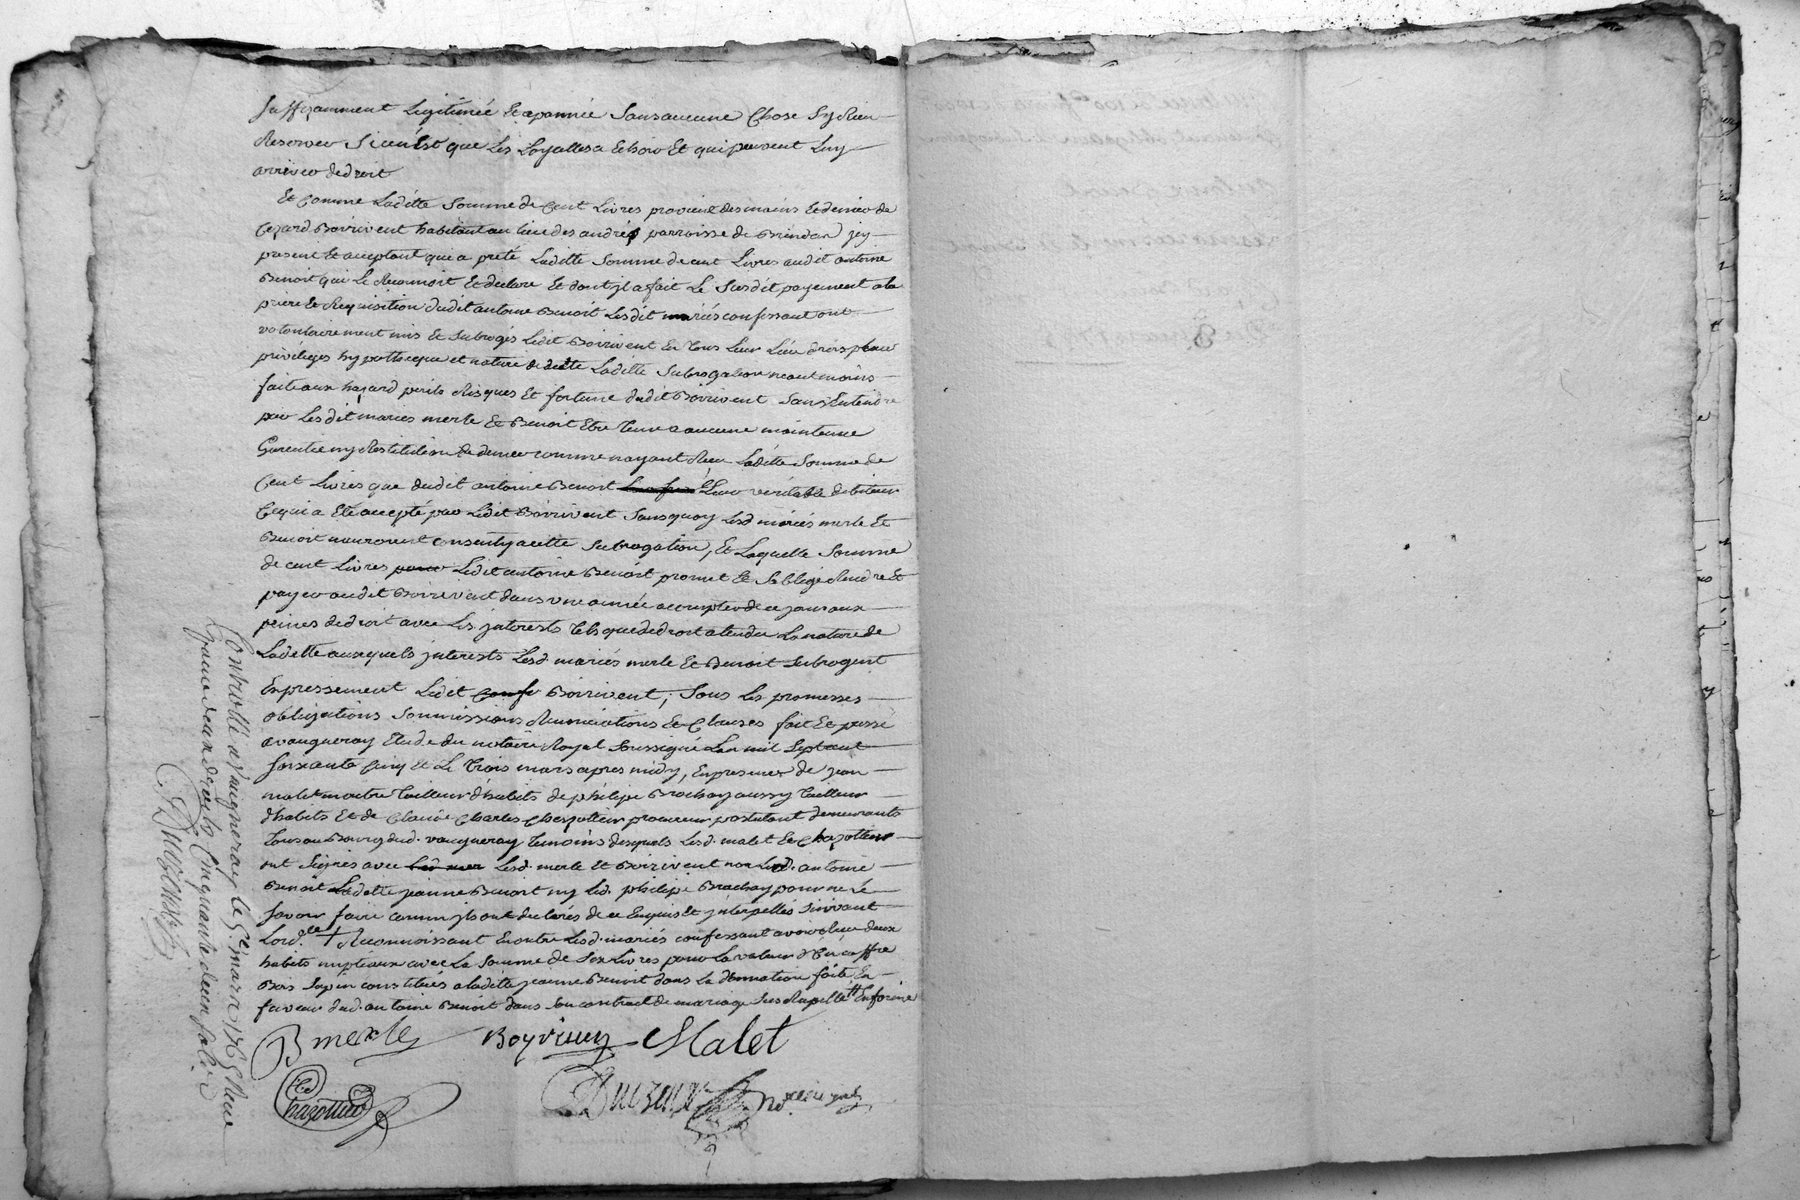 suffisamment Legitimée et apannée Sans aucune Chose Sy Rien
Reserver Sicen'Est que Les Loyalles a Echoir Et qui peuvent Luy
arriver de droit
Et Comme Laditte Somme de Cent Livres provient des mains Et denier de
Boirivent habitant au lieu des andrés parroisse de Brindas jcy
present Et acceptant que a preté Laditte Somme de cent Livres audit antoine
Benoit qui Le Reconnoit Et declare Et dont jl a fait Le Susdit payement ala
priere Et Requisition dudit antoine Benoit Lesdit mariés confessant ont
volontairement mis Et Subrogés Ledit Boirivent En tous Leur Lieu drois place
privileges hypothecque et nature de dette Laditte Subrogation neantmoins
faite aux hazard perils Risques Et fortune dudit Boirivent Sans Entendre
par Lesdit mariés merle Et Benoit Etre tenu a aucune maintenue
Garentie ny Restitution de denier comme nayant Reçu Laditte Somme de
Cent Livres que dudit antoine Benoit Leur veritable debiteur
Cequi a Eté accepté par Ledit Boirivent Sans quoy Lesd mariés merle Et
Benoit nauroient consenty a cette Subrogation, Et Laquelle Somme
de cent Livres Ledit antoine Benoit promet Et Soblige Rendre Et
payer audit Boirivent dans une année a compter de ce jour aux
peines de droit avec Les jnterests tels que de droit atendu La nature de
Ladette auxquels jnterests Lesd. mariés merle Et Benoit Subrogent
Expressement Ledit Boirivent, Sous Les promesses
obligations Soumissions Renonciations Et Clauses fait Et passé
a vaugneray Etude du notaire Royal Soussigné Lan mil Sept cent
Soixante Cinq Et Le trois mars apres midy, En presence de jean
malet maitre tailleur d'habits de philipe Brochay aussy tailleur
d'habits Et de Claude Charles Chazottier procureur postulant demeurants
tous au Bourg dud. vaugneray temoins desquels Lesd. malet Et Chazottier
ont Signés avec Lesd. merle Et Boirivent non Led. antoine
Benoit Laditte jeanne Benoit ny Led. philipe Brochay pour ne Le
Savoir faire comm jls ont declarés de ce Enquis Et jnterpellés Suivant
Lord.ce + Reconnoissant En outre Lesd. mariés confessant avoir Reçu deux
habits nuptiaux avec La Somme de Six Livres pour La valeur d'Un coffre
Bois Sapin constitués a ladite jeanne Benoit dans La donnation faite En
faveur dud. antoine Benoit dans Son contract de mariage Sus Rapellé En forme
B merle Boyriven Malet
Chazottier
Controllé a Vaugneray le 5e mars 1765 Reçu